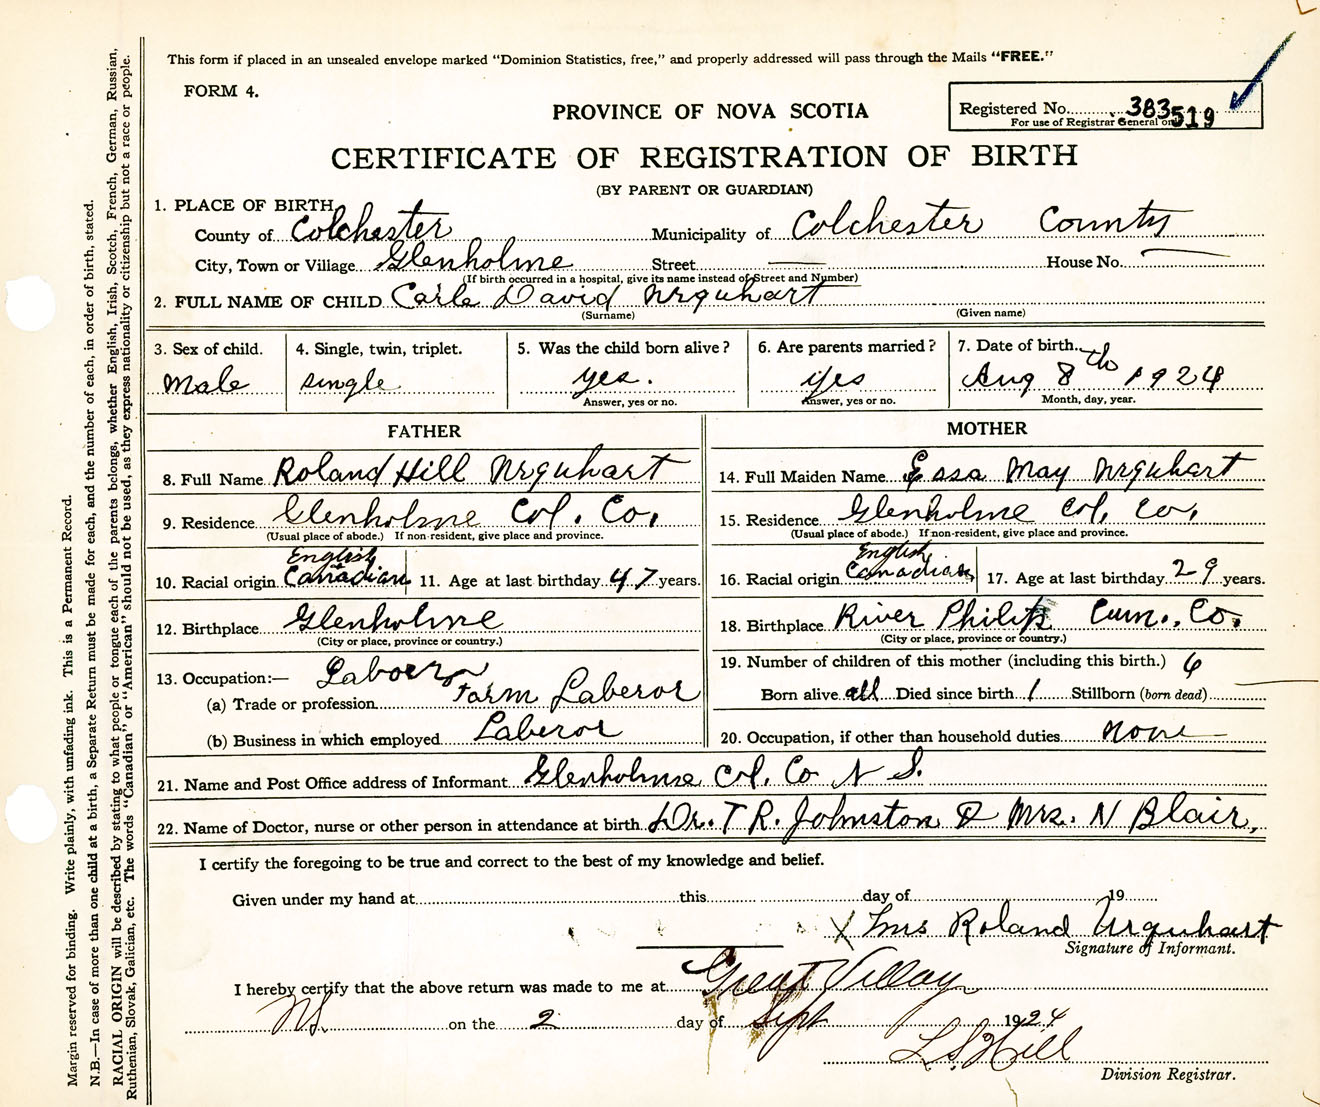 This form if placed in an unsealed envelope marked "Dominion Statistics, free," and properly addressed will pass through the Mails "FREE."
FORM 4.
PROVINCE OF NOVA SCOTIA
Registered No. 383519
For use of Registrar General on
CERTIFICATE OF REGISTRATION OF BIRTH
(BY PARENT OR GUARDIAN)
1. PLACE OF BIRTH
County of Colchester Municipality of Colchester County
City, Town or Village Glenholme Street — House No. —
(If birth occurred in a hospital, give its name instead of Street and Number)
2. FULL NAME OF CHILD Carle David Urquhart
(Surname) (Given name)
3. Sex of child. 4. Single, twin, triplet. 5. Was the child born alive? 6. Are parents married? 7. Date of birth
Male single yes. yes Aug 8th 1924
Answer, yes or no. Answer, yes or no. Month, day, year.
FATHER MOTHER
8. Full Name Roland Hill Urquhart 14. Full Maiden Name Essa May Urquhart
9. Residence Glenholme Col. Co. 15. Residence Glenholme Col. Co.
(Usual place of abode.) If non-resident, give place and province. (Usual place of abode.) If non-resident, give place and province.
English English
10. Racial origin Canadian 11. Age at last birthday 47 years. 16. Racial origin Canadian 17. Age at last birthday 29 years.
12. Birthplace Glenholme 18. Birthplace River Philip Cum. Co.
(City or place, province or country.) (City or place, province or country.)
13. Occupation:— 19. Number of children of this mother (including this birth.) 6
(a) Trade or profession Farm Laberor Born alive all Died since birth 1 Stillborn (born dead)
(b) Business in which employed Laberor 20. Occupation, if other than household duties none
21. Name and Post Office address of Informant Glenholme Col. Co N S.
22. Name of Doctor, nurse or other person in attendance at birth Dr. T R. Johnston & Mrs. N Blair,
I certify the foregoing to be true and correct to the best of my knowledge and belief.
Given under my hand at this day of 19
X Mrs Roland Urquhart
Signature of Informant.
I hereby certify that the above return was made to me at Great Village
NS. on the 2 day of Sept 1924
L S Hill
Division Registrar.
Margin reserved for binding. Write plainly, with unfading ink. This is a Permanent Record.
N.B.—In case of more than one child at a birth, a Separate Return must be made for each, and the number of each, in order of birth, stated.
RACIAL ORIGIN will be described by stating to what people or tongue each of the parents belongs, whether English, Irish, Scotch, French, German, Russian,
Ruthenian, Slovak, Galician, etc. The words "Canadian" or "American" should not be used, as they express nationality or citizenship but not a race or people.